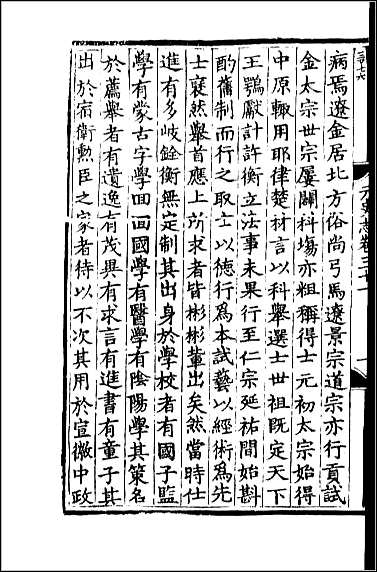 病焉遼金居北方俗尚弓馬遼景宗道宗亦行貢試
金太宗世宗屢闢科塲亦粗稱得士元初太宗始得
中原輙用耶律楚材言以科舉選士世祖既定天下
王鶚獻計許衡立法事未果行至仁宗延祐間始斟
酌舊制而行之取士以德行爲本試藝以經術爲先
士襃然舉首應上所求者皆彬彬輩出矣然當時仕
進有多岐銓衡無定制其出身於學校者有國子監
學有蒙古字學囬囬國學有醫學有隂陽學其策名
於薦舉者有遺逸有茂異有求言有進書有童子其
出於宿衛勲臣之家者待以不次其用於宣徽中政